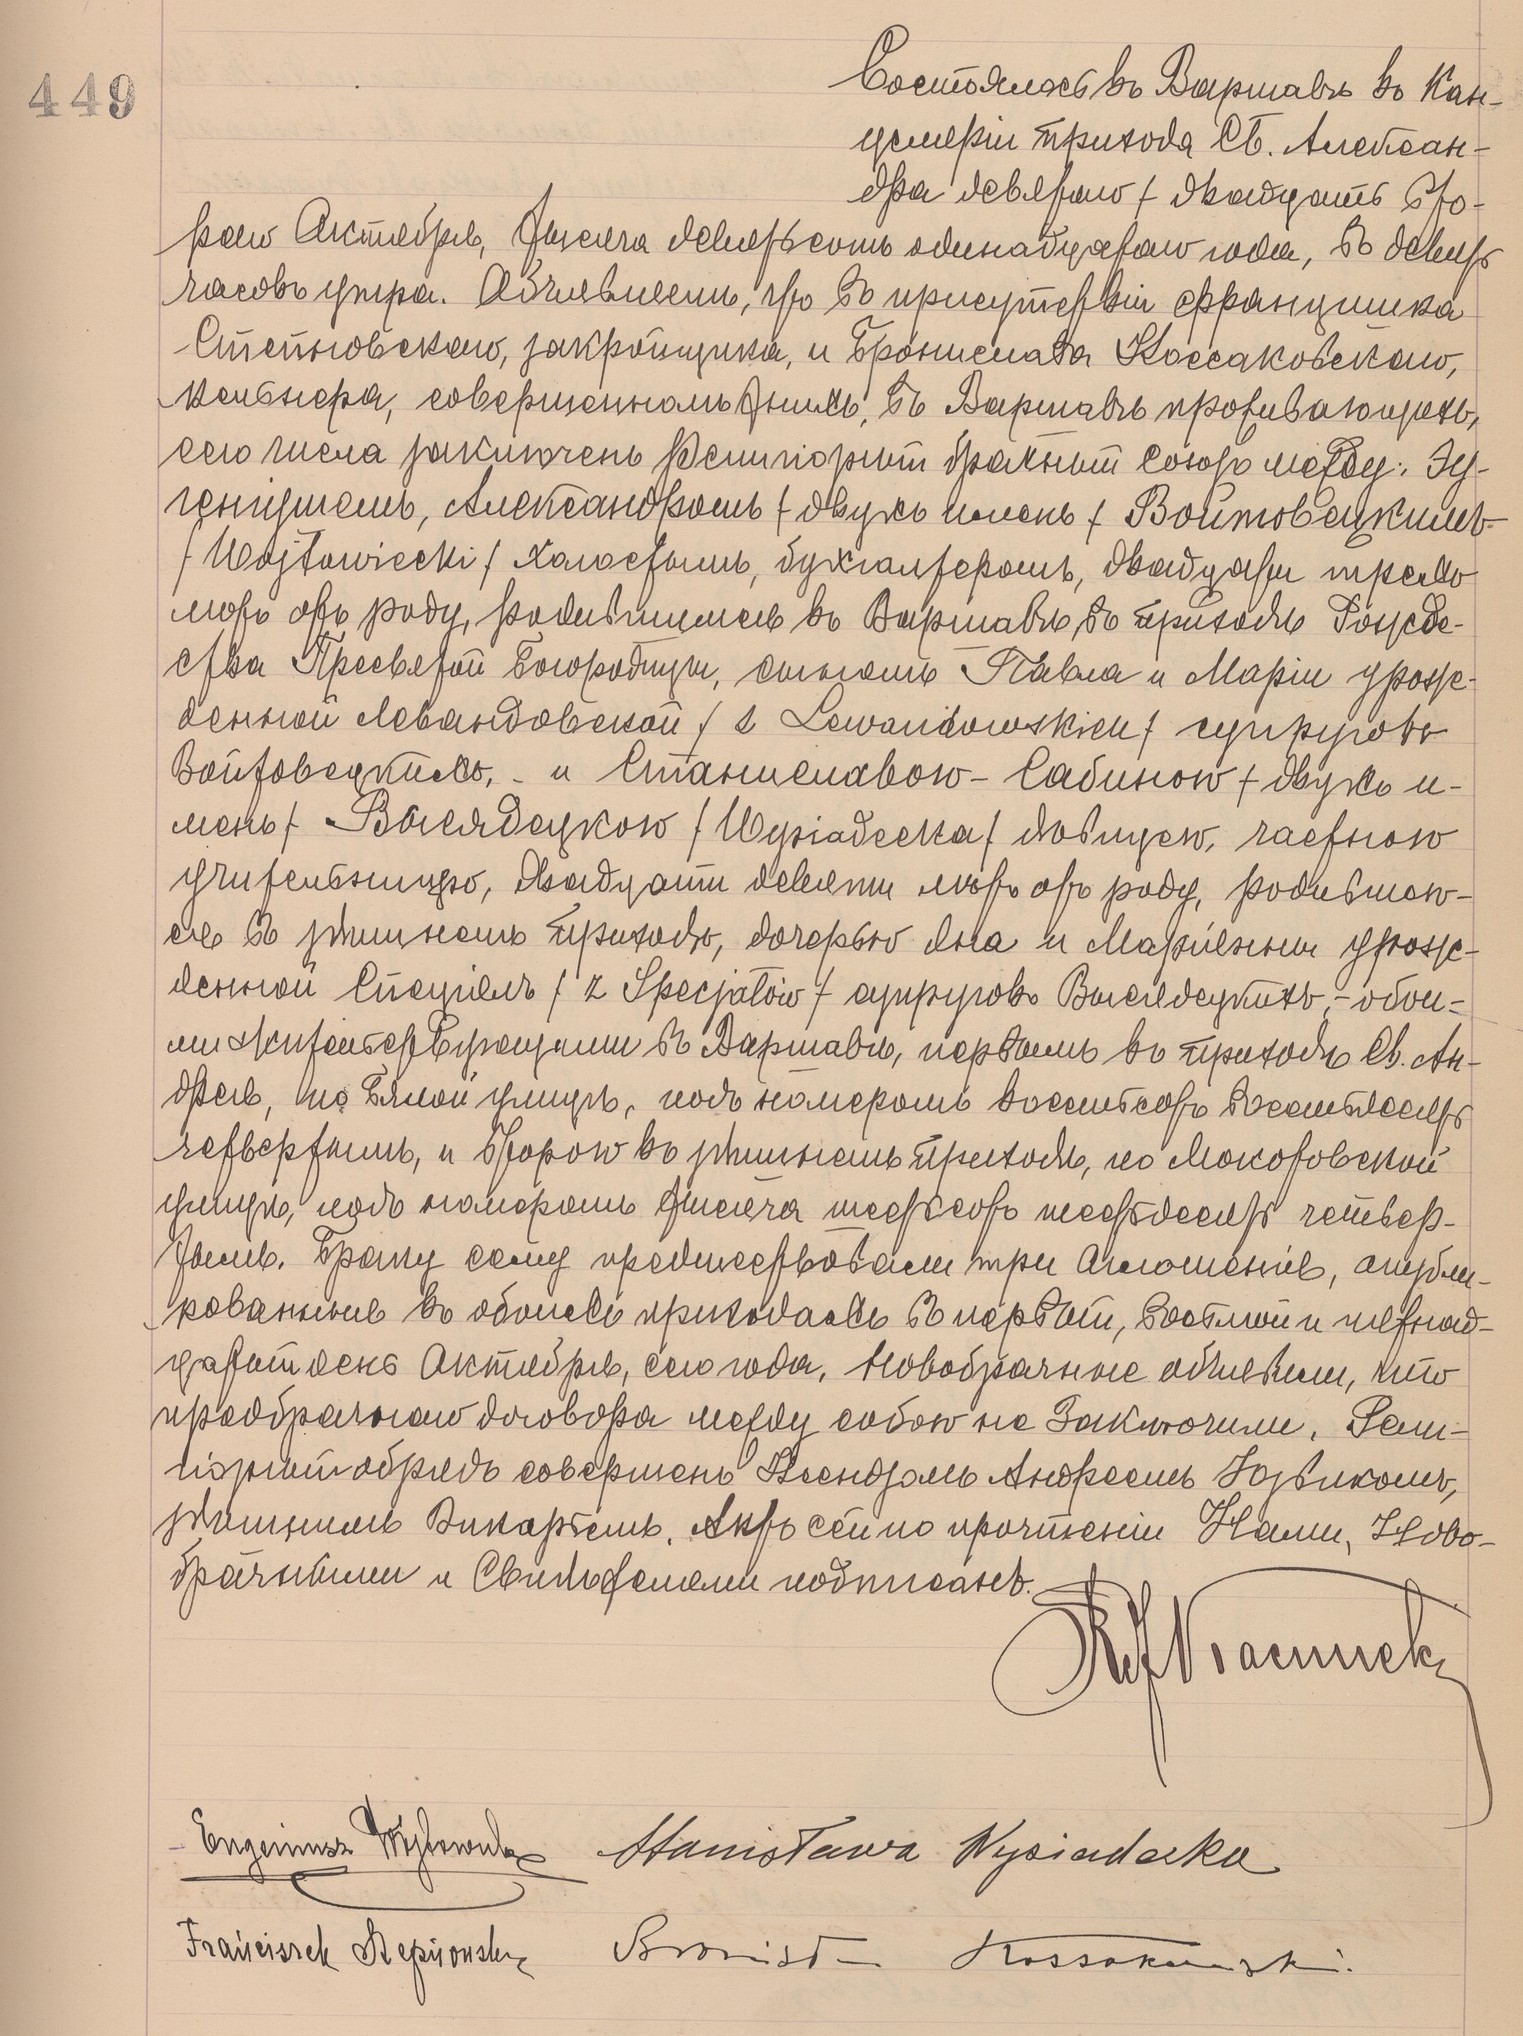 449
Состоялось въ Варшавѣ въ Кан-
целяріи прихода Св. Алексан-
дра девятаго / двадцать вто-
раго Октября, тысяча девятьсотъ одинадцатаго года, въ девять
часовъ утра. Объявляемъ, что въ присутствіи Францишка
Стпичовскаго, закройщика, и Бронислава Коссаковскаго,
кельнера, совершеннолѣтнихъ, въ Варшавѣ проживающихъ,
сего числа заключенъ религіозный брачный союзъ между: Эу-
геніушемъ, Александромъ / двухъ именъ / Войтовецкимъ
/ Wojtowiecki / холостымъ, бухгалтеромъ, двадцати трехъ
лѣтъ отъ роду, родившимся въ Варшавѣ, въ приходѣ Рожде-
ства Пресвятой Богородицы, сыномъ Павла и Маріи урож-
денной Левандовской / z Lewandowskich / супруговъ
Войтовецкихъ, - и Станиславою - Сабиною / двухъ и-
менъ / Высядецкою / Wysiadecka / дѣвицею, частною
учительницею, двадцати девяти лѣтъ отъ роду, родившею-
ся въ здѣшнемъ приходѣ, дочерью Яна и Маріянны урож-
денной Спеціялъ / z Specjałów / супруговъ Высядецкихъ, - обои-
ми жительствующими въ Варшавѣ, первымъ въ приходѣ Св. Ан-
дрея, по Бялой улицѣ, подъ номеромъ восемьсотъ восемьдесятъ
четвертымъ, и второю въ здѣшнемъ приходѣ, по Мокотовской
улицѣ, подъ номеромъ тысяча шестьсотъ шестьдесятъ четвер-
тымъ. Браку сему предшествовали три оглашенія, опубли-
кованныя въ обоихъ приходахъ въ первый, восьмой и пятнад-
цатый день Октября, сего года. Новобрачные объявили, что
предбрачнаго договора между собою не заключили. Рели-
гіозный обрядъ совершенъ Ксендзомъ Андреемъ
здѣшнимъ Викаріемъ. Актъ сей по прочтеніи Нами, Ново-
брачными и Свидѣтелями подписанъ.
Eugeniusz Stanisława Wysiadecka
Franciszek Bronisł Kossakowski